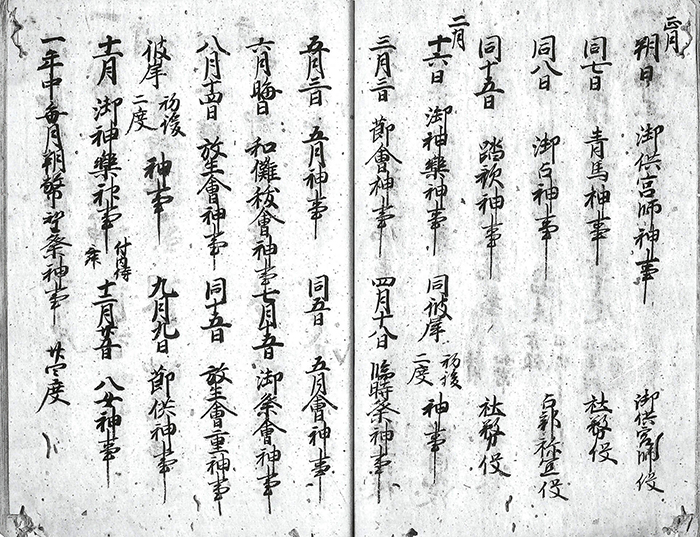 正月
朔日 御供宮師神事 御供宮師役
同七日 青馬神事 社務役
同八日 御占神事 占部祢宜役
同十五日 踏歌神事 社務役
二月
十六日 御神樂神事 同彼岸 初後二度 神事
三月三日 節會神事 四月十八日 臨時祭神事
五月三日 五月神事 同五日 五月會神事
六月晦日 和儺祓會神事 七月十五日 御祭會神事
八月十四日 放生會神事 同十五日 放生會重神事
彼岸 初後二度 神事 九月九日 節供神事
十一月 御神樂神事 付内侍 十二月廿五日 八女神事
一年中毎月朔幣望祭神事 廿四度